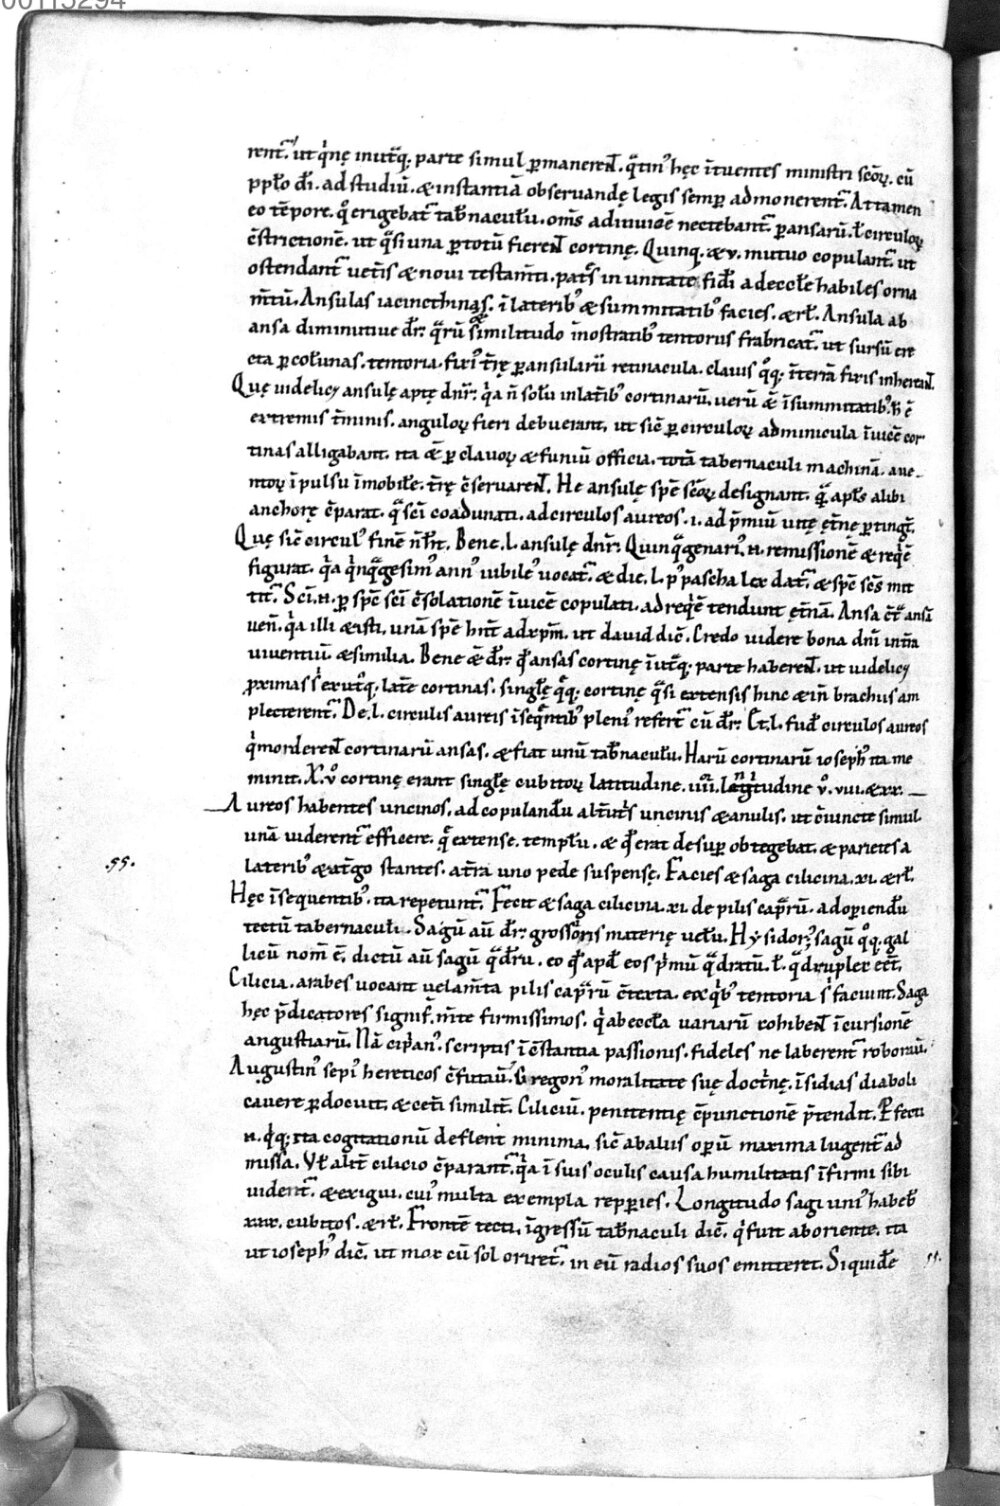 00115294
rent᷑. ut q̇nę inutq̣; parte simul ꝑmanerent. q̈tin᷒ hęc ītuentes ministri scōꝝ. cū
ppl̄o dī. ad studiū. & instantiā obseruandę legis semꝑ admonerent᷑. Attamen
eo tēpore. qͦ erigebat᷑ tab̄naculū. om̄s adinuicē nectebant᷑. ꝑ ansarū. ł circuloꝝ
c̄strictionē. ut q̈si una ꝑ totū fierent cortinę. Quinq; & .v. mutuo copulant᷑. ut
ostendant᷑ uet̄is & noui testam̄ti. pat̄s in unitate fidi adeccłe habiles orna
m̄tū. Ansulas iacincthinas. ī laterib᷒ & summitatib᷒ facies. & rł. Ansula ab
ansa diminitiue dr̄: q̈rū similitudo īnostratib᷒ tentoriis frabricat᷑. ut sursū ere
cta ꝑ colūnas. tentoria. fixi᷒ t̄rę ꝑ ansularū retinacula. clauis qͦq; īterrā fixis inhereant.
Quę uidelicꝫ ansulę aptę dn̄r: q̇a n̄ solū inlat̄ib᷒ cortinarū. uerū & īsummitatib᷒. ħ ē
extremis t̄minis. anguloꝝ fieri debuerant, ut sic̄ ꝑ circuloꝝ adminicula īuicē cor
tinas alligabant. ita & ꝑ clauoꝝ & funiū officia. totā tabernaculi machinā. aue-
ntoꝝ īpulsu īmobile. t̄rę c̄seruarent. He ansulę spē scōꝝ designant. quā apłs alibi
anchorę c̄parat. q̈ scī coadunati. ad circulos aureos .i. ad p̄miū uitę ęt̄nę ꝑtingt̄.
Quę sic̄ circul᷒ finē n̄ h̄t. Bene .L. ansulę dn̄r: Quinq̈genari᷒ .n. remissionē & reqͥē
figurat. q̇a q̇nq̈gesim᷒ ann᷒ iubile᷒ uocat᷑. & die .L. p᷒ pascha lex dat᷑. & spc̄ sc̄s mit
tit᷑. Scī .n. ꝑ spc̄ scī c̄solationē īuicē copulati. ad reqͥē tendunt ęt̄nā. Ansa c̄t̄ ansā
uen̄. q̇a illi & isti. unā spē hn̄t ad xp̄m. ut dauid dic̄. Credo uidere bona dn̄i int̄ra
uiuentiū. & similia. Bene & dr̄: qđ ansas cortinę īutq̣; parte haberent. ut uidelicꝫ
proximas s᷒ exutͦq; late᷒ cortinas. singulę q̄q; cortinę q̈si extensis hinc & in̄ brachiis am
plecterent᷑. De .L. circulis aureis īseq̄ntib᷒ pleni᷒ refert᷑ cū dr̄: Et .L. fud᷒ circulos aureos
q̇morderent cortinarū ansas. & fiat unū tab̄naculū. Harū cortinarū ioseph᷒ ita me
minit. X. ṽ cortinę erant singulę cubitoꝝ latitudine. iiii. longitudine ṽ. viii. & xx.
Aureos habentes uncinos. ad copulandū alt̄ut̄s uncinis & anulis. ut c̄uincte simul.
unā uiderent᷑ efficere. q̄ extense. templū. & qđ erat desuꝑ obtegebat. & parietes a
laterib᷒ & at̄go stantes. at̄ra uno pede suspensę. Facies & saga cilicina .xi. & rł.
Hęc īsequentib᷒. ita repetunt᷑. Fecit & saga cilicina .xi. de pilis capr̄rū. adoꝑiendū
tectū tabernaculi. Sagū aū dr̄: grossioris materię uelū. Hysidor᷒. sagū qͦq; gal
licū nom̄ ē. dictū aū sagū q̈drū. eo qđ apd̄ eos pͥmū q̈dratū. ł q̈druplex eet̄.
Cilicia. arabes uocant uelam̄ta pilis capr̄rū c̄texta. exqͥb᷒ tentoria s᷒ faciunt. Saga
hęc p̄dicatores signif̄. m̄te firmissimos. q̇ abeccła uariarū cohibent īcursionē
angustiarū. Nā cipͥan᷒. scriptis ī c̄stantia passionis. fideles ne laberent᷑ roborau᷒.
Augustin᷒ sepi᷒ hereticos c̄futau᷒. Gregori᷒ moralitate suę doctͥnę. īsidias diaboli
cauere ꝑdocuit. & cet̄i similit̄. Ciliciū. penitentię c̄punctionē p̄tendit. Ꝑfecti
.n. q̇q; ita cogitationū deflent minima. sic̄ abalus opeꝝ maxima lugent᷑ ad
missa. Vł alit̄ cilicio c̄parant᷑. q̇a ī suis oculis causa humilitatis īfirmi sibi
uident᷑. & exigui. cui᷒ multa exempla repꝑies. Longitudo sagi uni᷒ habeb̄
xxx. cubitos. & rł. Frontē tecti. īgressū tab̄naculi dic̄. q̇ fuit aboriente. ita
ut ioseph᷒ dic̄. ut mox cū sol oriret᷑. in eū radios suos emitteret. Siquidē